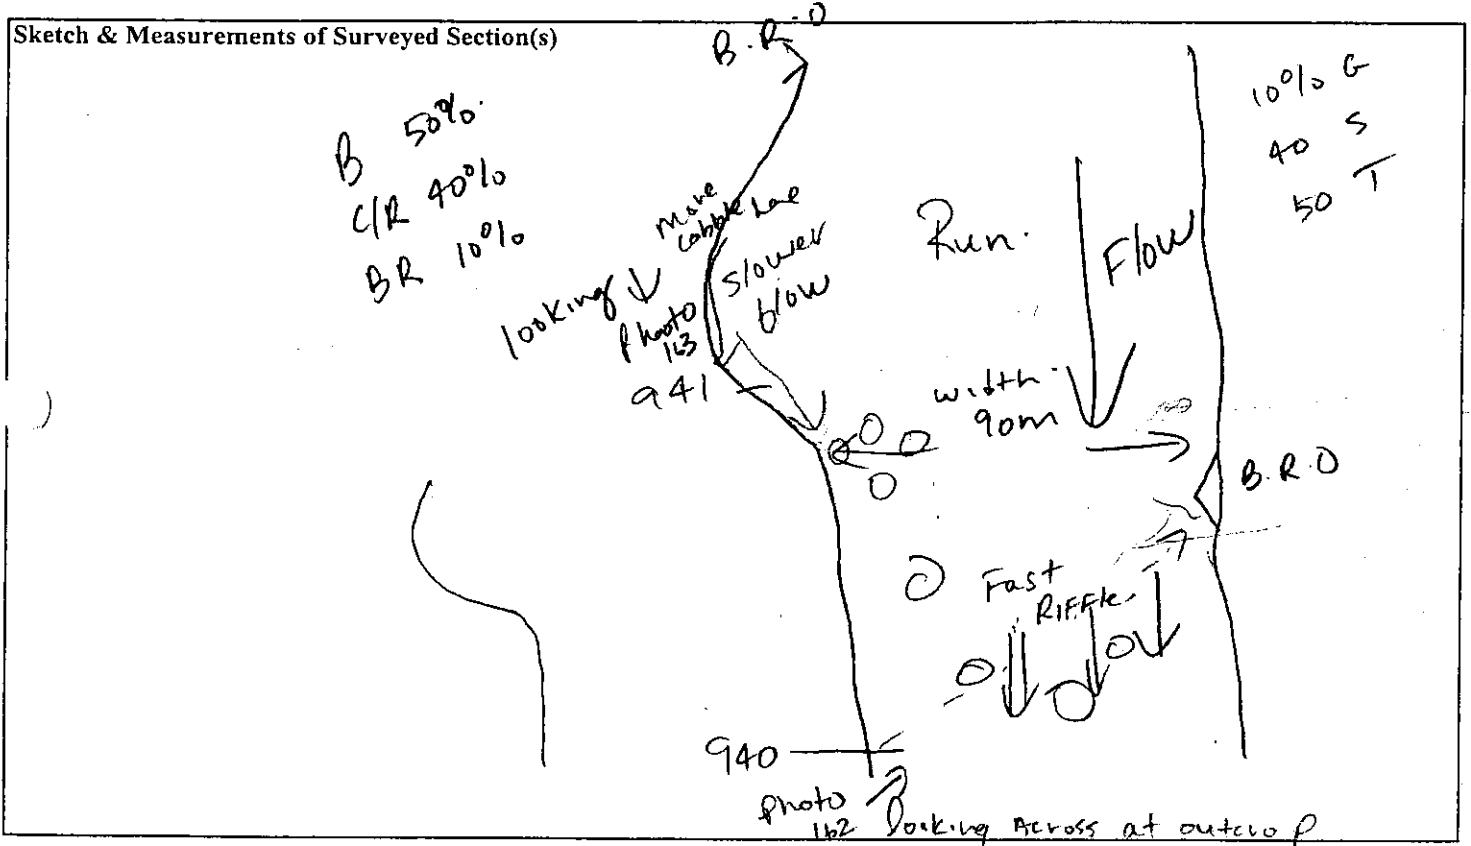 Sketch & Measurements of Surveyed Section(s)
B.R.O
B 50%
C/R 40%
BR 10%
10% G
40 S
50 T
More
cobble here
slower
blow
Run.
Flow
looking
Photo
163
941
width
90m
B.R.O
Fast
RIFFle
940
Photo
162 looking Across at outcrop